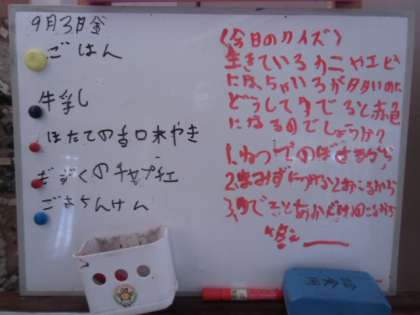 9月3日金
ごはん
牛乳
ほたての香味やき
ぞくのチャプチェ
ごまちんげん
〈今日のクイズ〉
生きているカニやエビ
には、ちゃいろが多いのに
どうしてゆでると赤色
になるのでしょうか?
1.ねつでのぼせるから
2.まみずに つかると あかくなるから
3.ゆでると あかだけ のこるから
答え